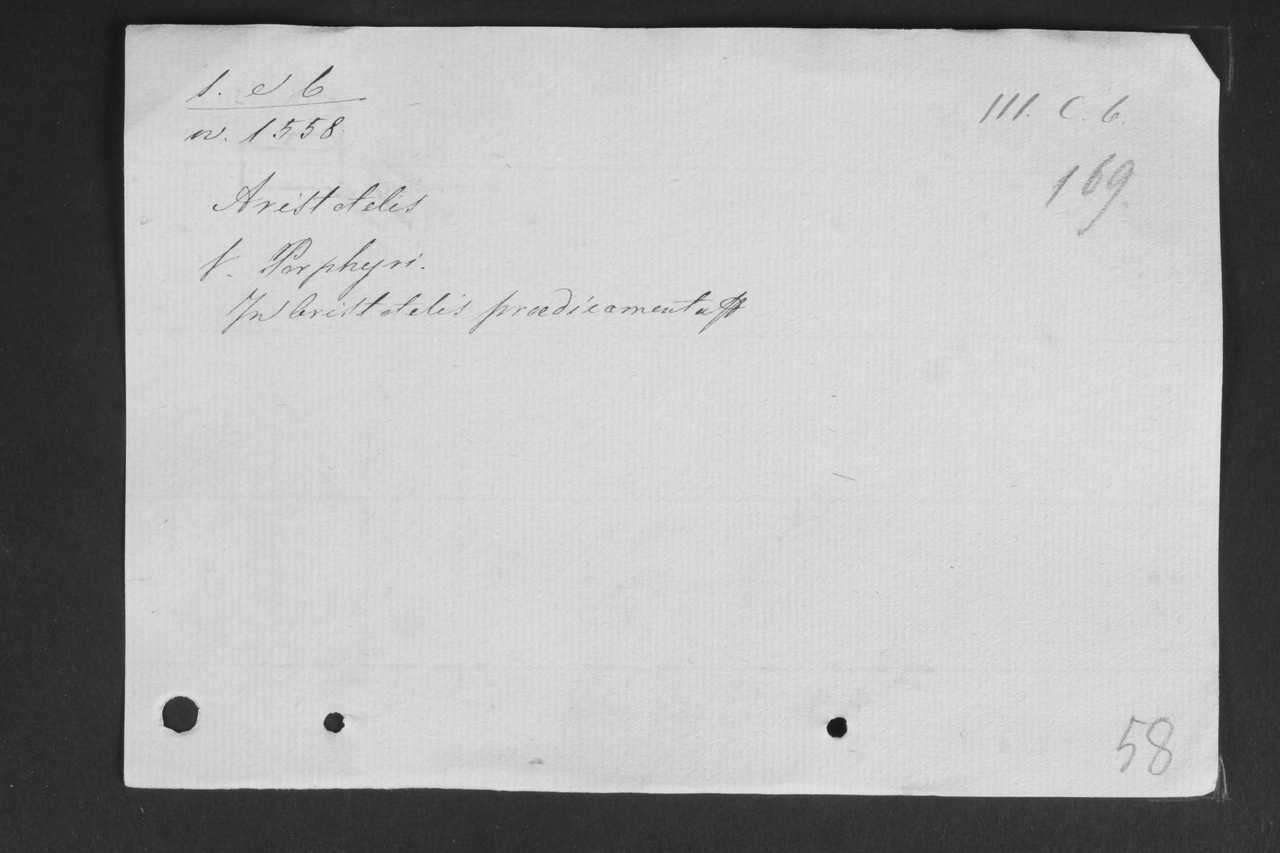 s. e b
n. 1558.
III. C. 6.
169.
Aristotelis
V. Porphyri.
In Aristotelis prædicamenta
58